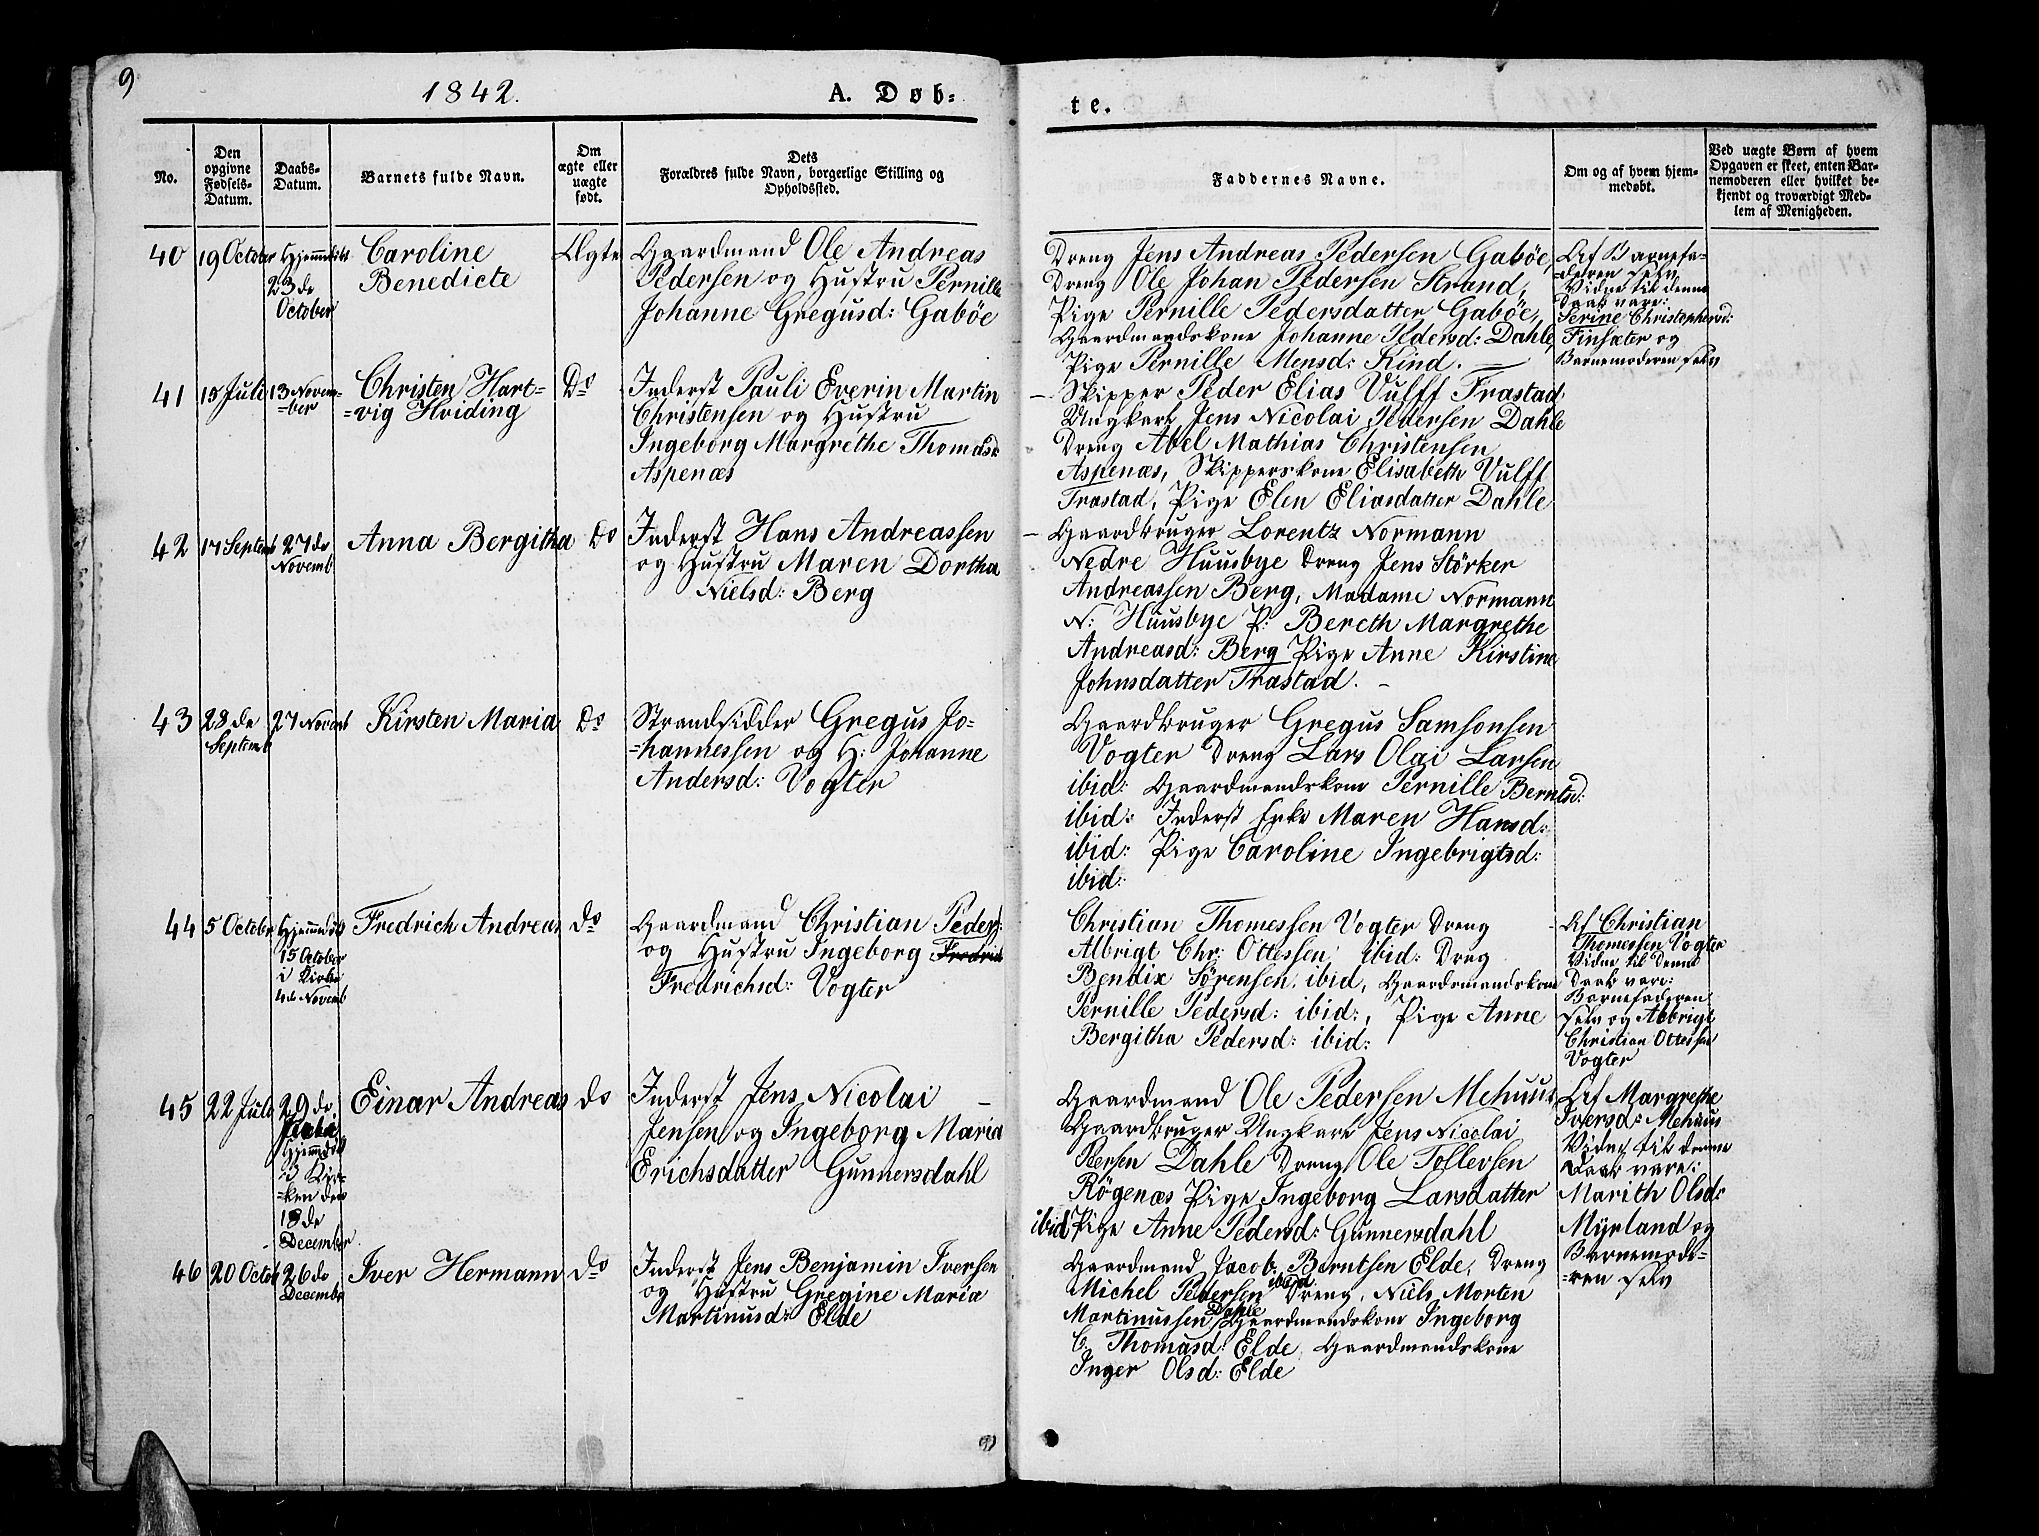 9
1842.
A. Døb-
te.
No.
Den opgivne Fødsels-Datum.
Daabs-Datum.
Barnets fulde Navn.
Om ægte eller uægte født.
Dets
Forældres fulde Navn, borgerlige Stilling og
Opholdssted.
Faddernes Navne.
Om og af hvem hjem-
medøbt.
Ved uægte Børn af hvem
Opgaven er skeet, enten Bar-
nemoderen eller hvilket be-
kjendt og troværdigt Med-
lem af Menigheden.
40
19 October
Hjemmedøbt
23de
October
Caroline
Benedicte
Ægte
Gaardmand Ole Andreas
Pedersen og Hustru Pernille
Johanne Gregusd: Gabøe
Dreng Jens Andreas Pedersen Gabøe,
Dreng Ole Johan Pedersen Strand,
Pige Pernille Pedersdatter Gabøe,
Gaardmandskone Johanne Pedersd: Dahle,
Pige Pernille Mensd: Kind. —
Af Barnefa-
deren selv
Vidne til denne
Daab vare:
Serine Christophersd:
Finsæter og
Barnemoderen selv
41
15 Juli
13 Novem-
ber
Christen Hart-
-vig Hviding
Do
Inderst Pauli Everin Martin
Christensen og Hustru
Ingeborg Margrethe Thomasd:
Aspenæs
Skipper Peder Elias Vulff Trastad,
Ungkarl Jens Nicolai Pedersen Dahle
Dreng Abel Mathias Christensen
Aspenæs, Skipperskone Elisabeth Vulff
Trastad, Pige Elen Eliasdatter Dahle
42
17 Septemb
27de
Novemb
Anna Bergitha
Do
Inderst Hans Andreassen
og Hustru Maren Dortha
Nielsd: Berg
Gaardbruger Lorentz Normann
Nedre Huusbye Dreng Jens Störker
Andreassen Berg, Madame Normann
N: Huusbye P: Bereth Margrethe
Andreasd: Berg Pige Anne Kirstine
Johnsdatter Trastad. —
43
28de
Septemb
27 Novemb
Kirsten Maria
Do
Strandsidder Gregus Jo-
-hannessen og H: Johanne
Andersd: Vogter
Gaardbruger Gregus Samsonsen
Vogter Dreng Lars Olai Larsen
ibid: Gaardmandskone Pernille Berntsd:
ibid: Inderst Enke Maren Hansd:
ibid: Pige Caroline Ingebrigtsd:
ibid:
44
5 Octobr
Hjemmedøbt
15 October
i Kirken
4de Novemb
Fredrich Andreas
do
Gaardmand Christian Peders:
og Hustru Ingeborg Fredric
Fredrichsd: Vogter
Christian Thomessen Vogter Dreng
Albrigt Chr: Ottessen ibid: Dreg
Bendix Sörensen ibid, Gaardsmandskone
Pernille Pedersd: ibid:, Pige Anne
Bergitha Pedersd: ibid:
Af Christian
Thomessen Vogter
Vidne til denne
Daab vare:
Barnefaderen
selv og Albrigt
Christian Ottessen
Vogter
45
22 Juli
29de
Hjemmedøbt
i Kir-
-ken den
18de
December
Einar Andreas
do
Inderst Jens Nicolai
Jensen og Ingeborg Maria
Erichsdatter Gunnersdahl
Gaardmand Ole Pedersen Mehuus,
Gaardbruger Ungkarl Jens Nicolai
Persen Dahle Dreng Ole Tollevsen
Røgenæs Pige Ingeborg Larsdatter
ibid Pige Anne Pedersd: Gunnersdahl
Af Margrethe
Iversd: Mehuus
Vidne til denne
Daab vare:
Marith Olsd:
Myrland og
Barnemode-
-ren selv
46
20 Octob
26de
Decembr
Iver Hermann
do
Inderst Jens Benjamin Iversen
og Hustru Gregine Maria
Martinusd: Elde
Gaardmand Jacob Berntsen Elde, Dreng
Michel Pedersen ibid: Dreng, Niels Morten
Martinussen Dahle Gaardmandskone Ingeborg
C. Thomasd: Elde, Gaardmandskone
Inger Olsd: Elde